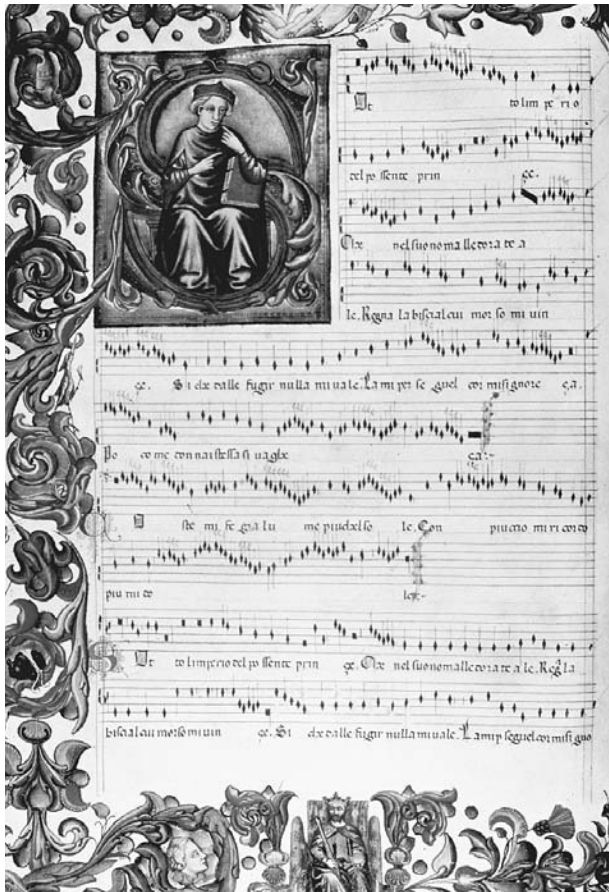 Ot to lim pe ri o
del po ssente prin çe.
Che nel suo no ma lle dora te a
le. Regna la biscial cui mor so mi uin
çe. Si che dalle fugir nulla mi uale. La mi per se guel cor misignore ça.
Po co me con
ça:-
mi. fe gia lu me piu chel so le. Con piu cio mi ricordo
piu mi do le:-
S Ot to limperio del po ssente prin çe. Che nel suo nomalle dora te a le. Reg̃ la
biscial cui morso mi uin çe. Si che dalle fugir nulla mi uale. La mi p seguel cor misigno